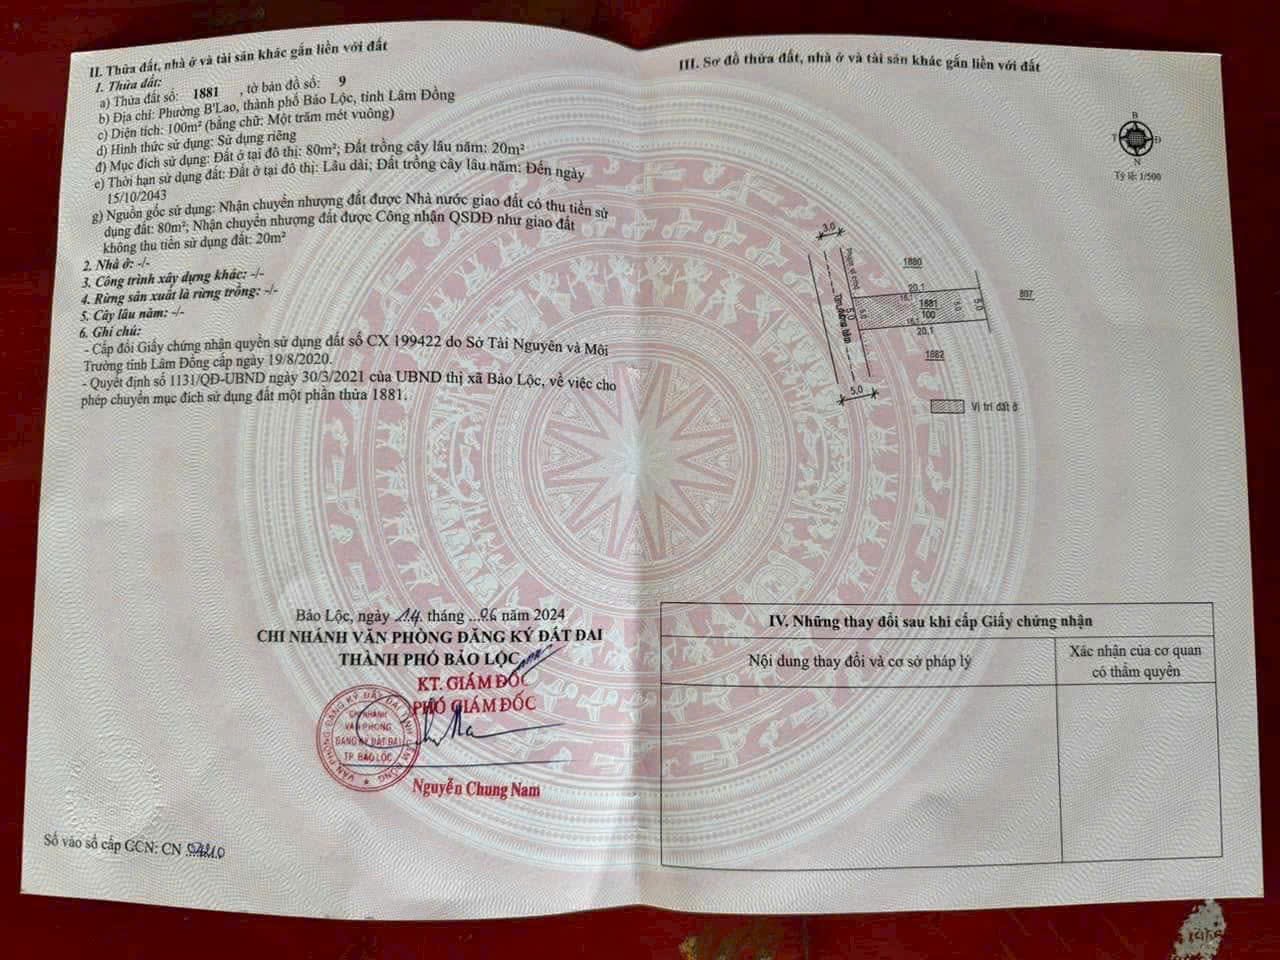 II. Thửa đất, nhà ở và tài sản khác gắn liền với đất
1. Thửa đất:
a) Thửa đất số: 1881 , tờ bản đồ số: 9
b) Địa chỉ: Phường B'Lao, thành phố Bảo Lộc, tỉnh Lâm Đồng
c) Diện tích: 100m² (bằng chữ: Một trăm mét vuông)
d) Hình thức sử dụng: Sử dụng riêng
đ) Mục đích sử dụng: Đất ở tại đô thị: 80m²; Đất trồng cây lâu năm: 20m²
e) Thời hạn sử dụng đất: Đất ở tại đô thị: Lâu dài; Đất trồng cây lâu năm: Đến ngày
15/10/2043
g) Nguồn gốc sử dụng: Nhận chuyển nhượng đất được Nhà nước giao đất có thu tiền sử
dụng đất: 80m²; Nhận chuyển nhượng đất được Công nhận QSDĐ như giao đất
không thu tiền sử dụng đất: 20m²
2. Nhà ở: -/-
3. Công trình xây dựng khác: -/-
4. Rừng sản xuất là rừng trồng: -/-
5. Cây lâu năm: -/-
6. Ghi chú:
- Cấp đổi Giấy chứng nhận quyền sử dụng đất số CX 199422 do Sở Tài Nguyên và Môi
Trường tỉnh Lâm Đồng cấp ngày 19/8/2020.
- Quyết định số 1131/QĐ-UBND ngày 30/3/2021 của UBND thị xã Bảo Lộc, về việc cho
phép chuyển mục đích sử dụng đất một phần thửa 1881.
Bảo Lộc, ngày 14 tháng ...06 năm 2024
CHI NHÁNH VĂN PHÒNG ĐĂNG KÝ ĐẤT ĐAI
THÀNH PHỐ BẢO LỘC
KT. GIÁM ĐỐC
PHÓ GIÁM ĐỐC
VĂN PHÒNG ĐĂNG KÝ ĐẤT ĐAI TỈNH LÂM ĐỒNG
CHI NHÁNH
VĂN PHÒNG
ĐĂNG KÝ ĐẤT ĐAI
TP. BẢO LỘC
Nguyễn Chung Nam
Số vào sổ cấp GCN: CN 04210
III. Sơ đồ thửa đất, nhà ở và tài sản khác gắn liền với đất
B
T
Đ
N
Tỷ lệ: 1/500
3,0
1880
807
20,1
16,1
1881
100
5,0
5,0
5,0
5,0
16,1
20,1
1882
5,0
Vị trí đất ở
IV. Những thay đổi sau khi cấp Giấy chứng nhận
Nội dung thay đổi và cơ sở pháp lý
Xác nhận của cơ quan
có thẩm quyền